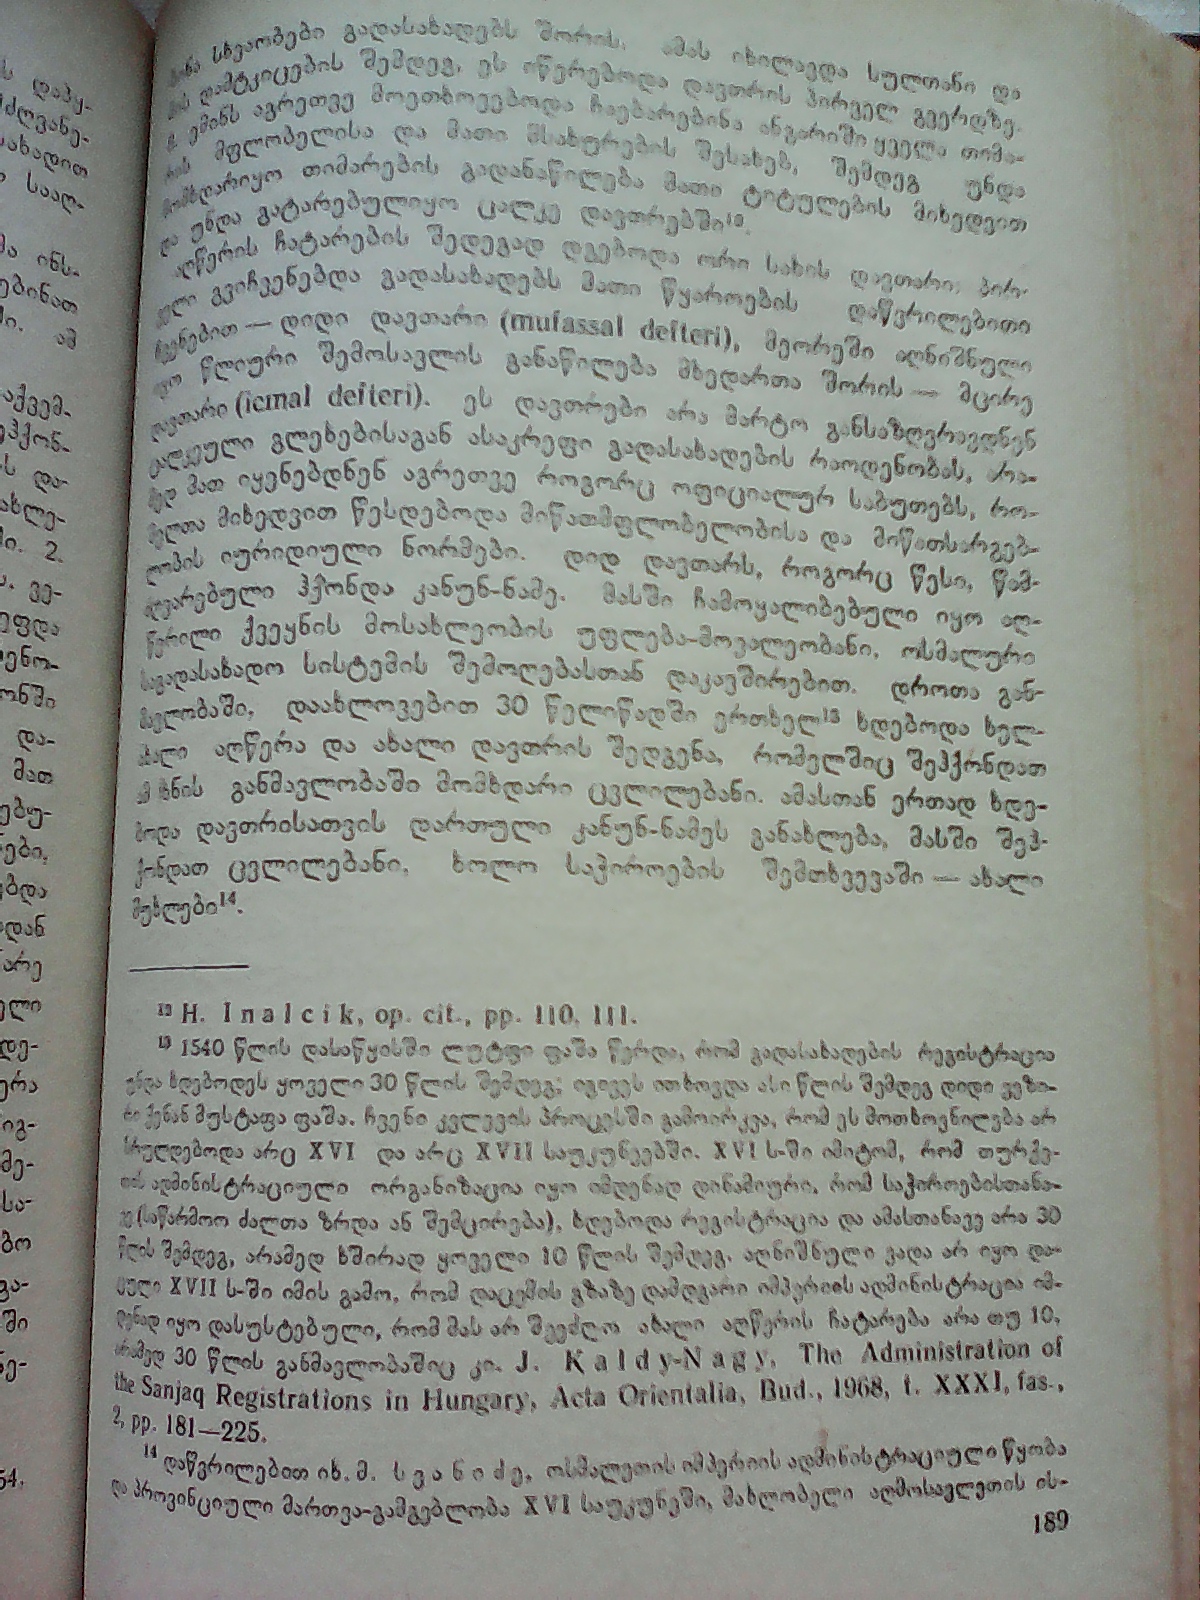 სხვაობები გადასახადებს შორის. ამას იხილავდა სულთანი და
დამტკიცების შემდეგ, ეს იწერებოდა დავთრის პირველ გვერდზე.
ემინს აგრეთვე მოეთხოვებოდა ჩაებარებინა ანგარიში ყველა თიმა-
რის მფლობელისა და მათი მსახურების შესახებ, შემდეგ უნდა
მომხდარიყო თიმარების გადანაწილება მათი ტიტულების მიხედვით
და უნდა გატარებულიყო ცალკე დავთრებში¹².
აღწერის ჩატარების შედეგად დგებოდა ორი სახის დავთარი: პირ-
ველი გვიჩვენებდა გადასახადებს მათი წყაროების დაწვრილებითი
ჩვენებით — დიდი დავთარი (mufassal defteri), მეორეში აღნიშნული
იყო წლიური შემოსავლის განაწილება მხედართა შორის — მცირე
დავთარი (icmal defteri). ეს დავთრები არა მარტო განსაზღვრავდნენ
ცალკეული გლეხებისაგან ასაკრეფი გადასახადების რაოდენობას, არა-
მედ მათ იყენებდნენ აგრეთვე როგორც ოფიციალურ საბუთებს, რო-
მელთა მიხედვით წესდებოდა მიწათმფლობელობისა და მიწათსარგებ-
ლობის იურიდიული ნორმები. დიდ დავთარს, როგორც წესი, წამ-
ძღვარებული ჰქონდა კანუნ-ნამე. მასში ჩამოყალიბებული იყო აღ-
წერილი ქვეყნის მოსახლეობის უფლება-მოვალეობანი, ოსმალური
საგადასახადო სისტემის შემოღებასთან დაკავშირებით. დროთა გან-
მავლობაში, დაახლოვებით 30 წელიწადში ერთხელ¹³ ხდებოდა ხელ-
ახალი აღწერა და ახალი დავთრის შედგენა, რომელშიც შეჰქონდათ
ქვეყნის განმავლობაში მომხდარი ცვლილებანი. ამასთან ერთად ხდე-
ბოდა დავთრისათვის დართული კანუნ-ნამეს განახლება, მასში შეჰ-
ქონდათ ცვლილებანი, ხოლო საჭიროების შემთხვევაში — ახალი
მუხლები¹⁴.
¹² H. Inalcik, op. cit., pp. 110, 111.
¹³ 1540 წლის დასაწყისში ლუტფი ფაშა წერდა, რომ გადასახადების რეგისტრაცია
უნდა ხდებოდეს ყოველი 30 წლის შემდეგ; იგივეს ითხოვდა ასი წლის შემდეგ დიდი ვეზი-
რი ქენან მუსტაფა ფაშა. ჩვენი კვლევის პროცესში გამოირკვა, რომ ეს მოთხოვნილება არ
სრულდებოდა არც XVI და არც XVII საუკუნეებში. XVI ს-ში იმიტომ, რომ თურქე-
თის ადმინისტრაციული ორგანიზაცია იყო იმდენად დინამიური, რომ საჭიროებისთანა-
ვე (საწარმოო ძალთა ზრდა ან შემცირება), ხდებოდა რეგისტრაცია და ამასთანავე არა 30
წლის შემდეგ, არამედ ხშირად ყოველი 10 წლის შემდეგ. აღნიშნული ვადა არ იყო და-
ცული XVII ს-ში იმის გამო, რომ დაცემის გზაზე დამდგარი იმპერიის ადმინისტრაცია იმ-
დენად იყო დასუსტებული, რომ მას არ შეეძლო ახალი აღწერის ჩატარება არა თუ 10,
არამედ 30 წლის განმავლობაშიც კი. J. Kaldy-Nagy, The Administration of
the Sanjaq Registrations in Hungary, Acta Orientalia, Bud., 1968, t. XXXI, fas.,
2, pp. 181—225.
¹⁴ დაწვრილებით იხ. მ. სვანიძე, ოსმალეთის იმპერიის ადმინისტრაციული წყობა
და პროვინციული მართვა-გამგებლობა XVI საუკუნეში, მახლობელი აღმოსავლეთის ის-
189